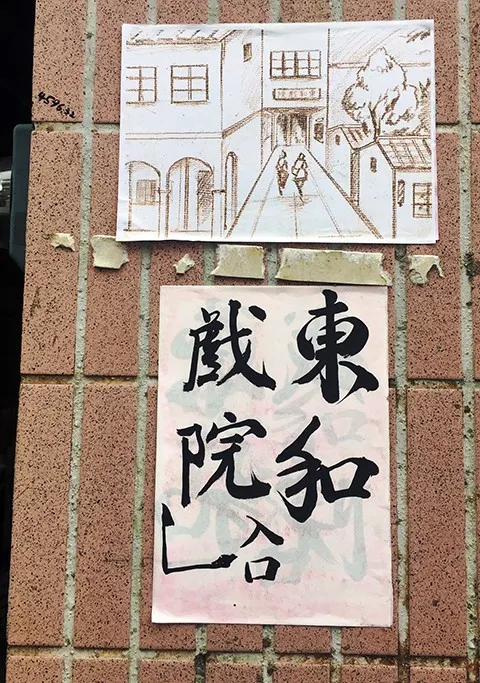 東和
戲院
入口